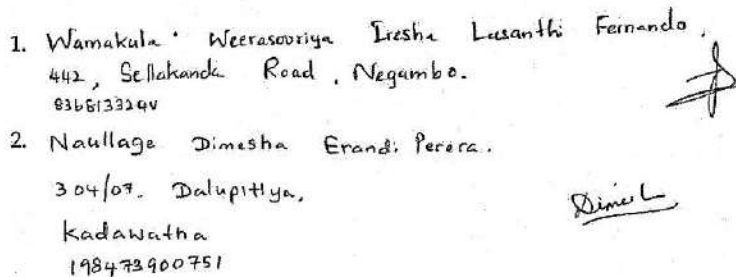 1. Wamakula. Weerasooriya Iresha Lusanthi Fernando,
442, Sellakanda Road, Negambo.
2. Naullage Dimesha Erandi Perera.
304/07. Dalupitiya,
Kadawatha
198473900751